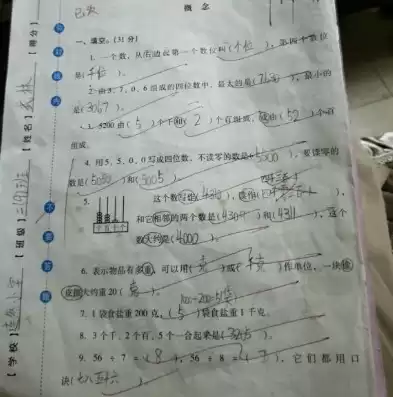 概 念
一、填空。(31分)
1. 一个数，从右边起第一个数位是(个位)，第四个数位
是(千位)。
2. 由3、7、0、6组成的四位数中，最大的是(7630)，最小的
是(3067)。
3. 5200由(5)个千和(2)个百组成，或由(52)个百
组成。
4. 用5、5、0、0写成四位数，不读零的数是(5500)，要读零的
数是(5050)和(5005)。
5.
这个数写做( )，读作( )，
和它相邻的两个数是(4309)和(4311)，这个
数大约是(4000)。
6. 表示物品有多重，可以用(克)或(千克)作单位，一块橡
皮擦大约重20(克)。
7. 1袋食盐重200克，(5)袋食盐重1千克。
8. 3个千、2个百、5个一合起来是(3205)。
9. 56÷7=(8)，56÷8=(7)，它们都用口
诀(七八五十六)。
【得分】
【姓名】
【班级】
【学校】